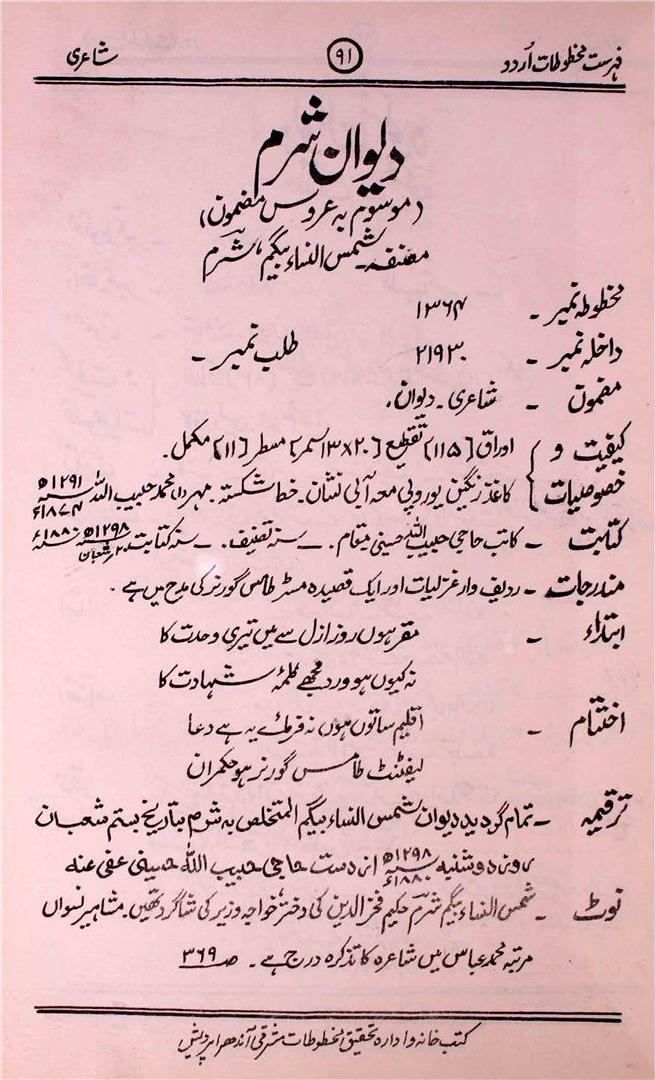 فہرست مخطوطات اُردو ۹۱ شاعری
دیوان شرم
(موسوم بہ عروس مضمون)
مصنفہ۔ شمس النساء بیگم، شرم
مخطوطہ نمبر۔ ۱۳۶۴
داخلہ نمبر۔ ۲۱۹۳۰ طلب نمبر۔
مضمون ۔ شاعری۔ دیوان،
کیفیت و } اوراق [۱۱۵] تقطیع [۲۰×۱۳ سمر] مسطر [۱۱] مکمل۔
خصوصیات } کاغذ رنگین یوروپی معہ آبی نشان۔ خط شکستہ۔ مہردار محمد حبیب اللہ سنہ ۱۲۹۱ھ ۱۸۷۴ء
کتابت ۔ کاتب حاجی حبیب اللہ حسینی مقام۔ ۔ سنہ تصنیف۔ ۔ سنہ کتابت ۱۲۹۸ھ ۲۰ شعبان سنہ ۱۸۸۰ء
مندرجات ۔ ردیف وار غزلیات اور ایک قصیدہ مسٹر طامس گورنر کی مدح میں ہے۔
ابتداء ۔ مقر ہوں روز ازل سے میں تیری وحدت کا
نہ کیوں ہو ورد مجھے کلمۂ شہادت کا
اختتام ۔ اقلیم ساتوں ہوں نہ فرمائے یہ ہے دعا
لیفٹنٹ طامس گورنر ہو حکمران
ترقیمہ ۔ تمام گردید دیوان شمس النساء بیگم المتخلص بہ شرم بتاریخ بستم شعبان
روز دوشنبہ سنہ ۱۲۹۸ھ ۱۸۸۰ء از دست حاجی حبیب اللہ حسینی عفی عنہ
نوٹ ۔ شمس النساء بیگم شرم حکیم فخر الدین کی دختر، خواجہ وزیر کی شاگرد تھیں۔ مشاہیر نسواں
مرتبہ محمد عباس میں شاعرہ کا تذکرہ درج ہے۔ صـ ۳۶۹
کتب خانہ و ادارہ تحقیق المخطوطات مشرقی آندھرا پردیش